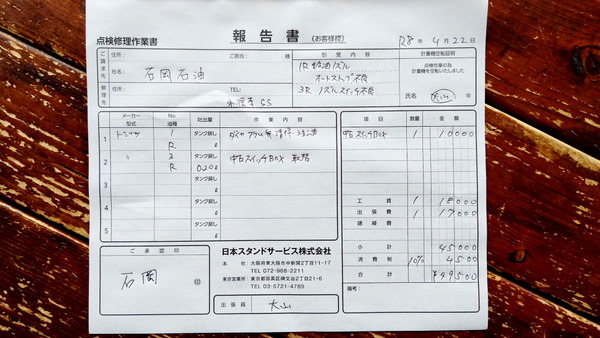 点検修理作業書
報告書 (お客様控)
28年 4月 22日
ご請求先
住所:
ご担当: 様
社名: 石岡石油
修理先
住所:
TEL:
SS
引堂内容
1R 給油ノズル
オートストップ不良
3R ノズルスイッチ不良
計量機空転証明
点検作業の為
計量機を空転いたしました
氏名 大山 ㊞
メーカー 型式 No. 油種 吐出量 作業内容
1 トミナガ 1 R タンク戻し ℓ
清掃・注油
2 〃 3 R タンク戻し 0.20ℓ 中古スイッチBOX 取替
3 タンク戻し ℓ
4 タンク戻し ℓ
5 タンク戻し ℓ
項目 数量 金額
中古スイッチBOX 1 10000
工賃 1 18000
出張費 1 17000
諸経費
小計 45000
消費税 10% 4500
合計 ¥49500
備考:
ご承認印
石岡 ㊞
日本スタンドサービス株式会社
本社:大阪府東大阪市中新開2丁目11-17
TEL 072-968-2211
東京営業所:東京都目黒区碑文谷2丁目21-6
TEL 03-5721-4789
出張員 大山